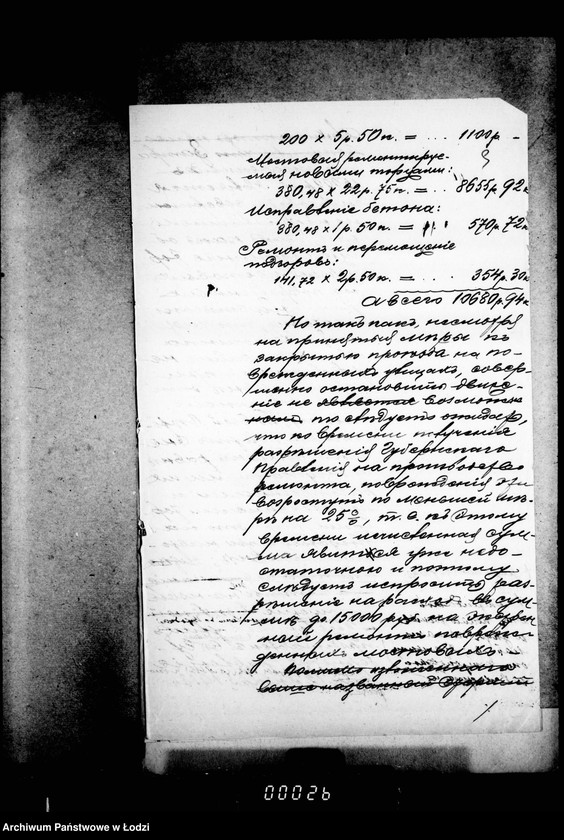 200 x 5р. 50к. = ... 1100р –
Мостовая ремонтируе-
мая новыми торцами:
380,48 x 22р. 75к. = .. 8655р. 92к
Исправленiе бетона:
380,48 x 1р. 50к. = 570р. 72к
Ремонтъ и перемощенiе
141,72 x 2р. 50к. = ... 354р. 30к
а всего 10680р. 94к
Но такъ какъ, несмотря
на принятыя мѣры къ
закрытью проѣзда на по-
врежденныхъ улицахъ, совер-
шенно остановить движе-
нiе не
то слѣдуетъ ожидать,
что ко времени полученiя
разрѣшенiя Губернскаго
Правленiя на производство
ремонта, поврежденiя эти
возростутъ по меньшей мѣ-
рѣ на 25%, т. е. къ этому
времени исчисленная сум-
ма явится уже недо-
статочною и потому
слѣдуетъ испросить раз-
рѣшенiе на расходъ въ сум-
мѣ до 15000 руб. на
ремонтъ повреж-
денныхъ мостовыхъ
00026
Archiwum Państwowe w Łodzi